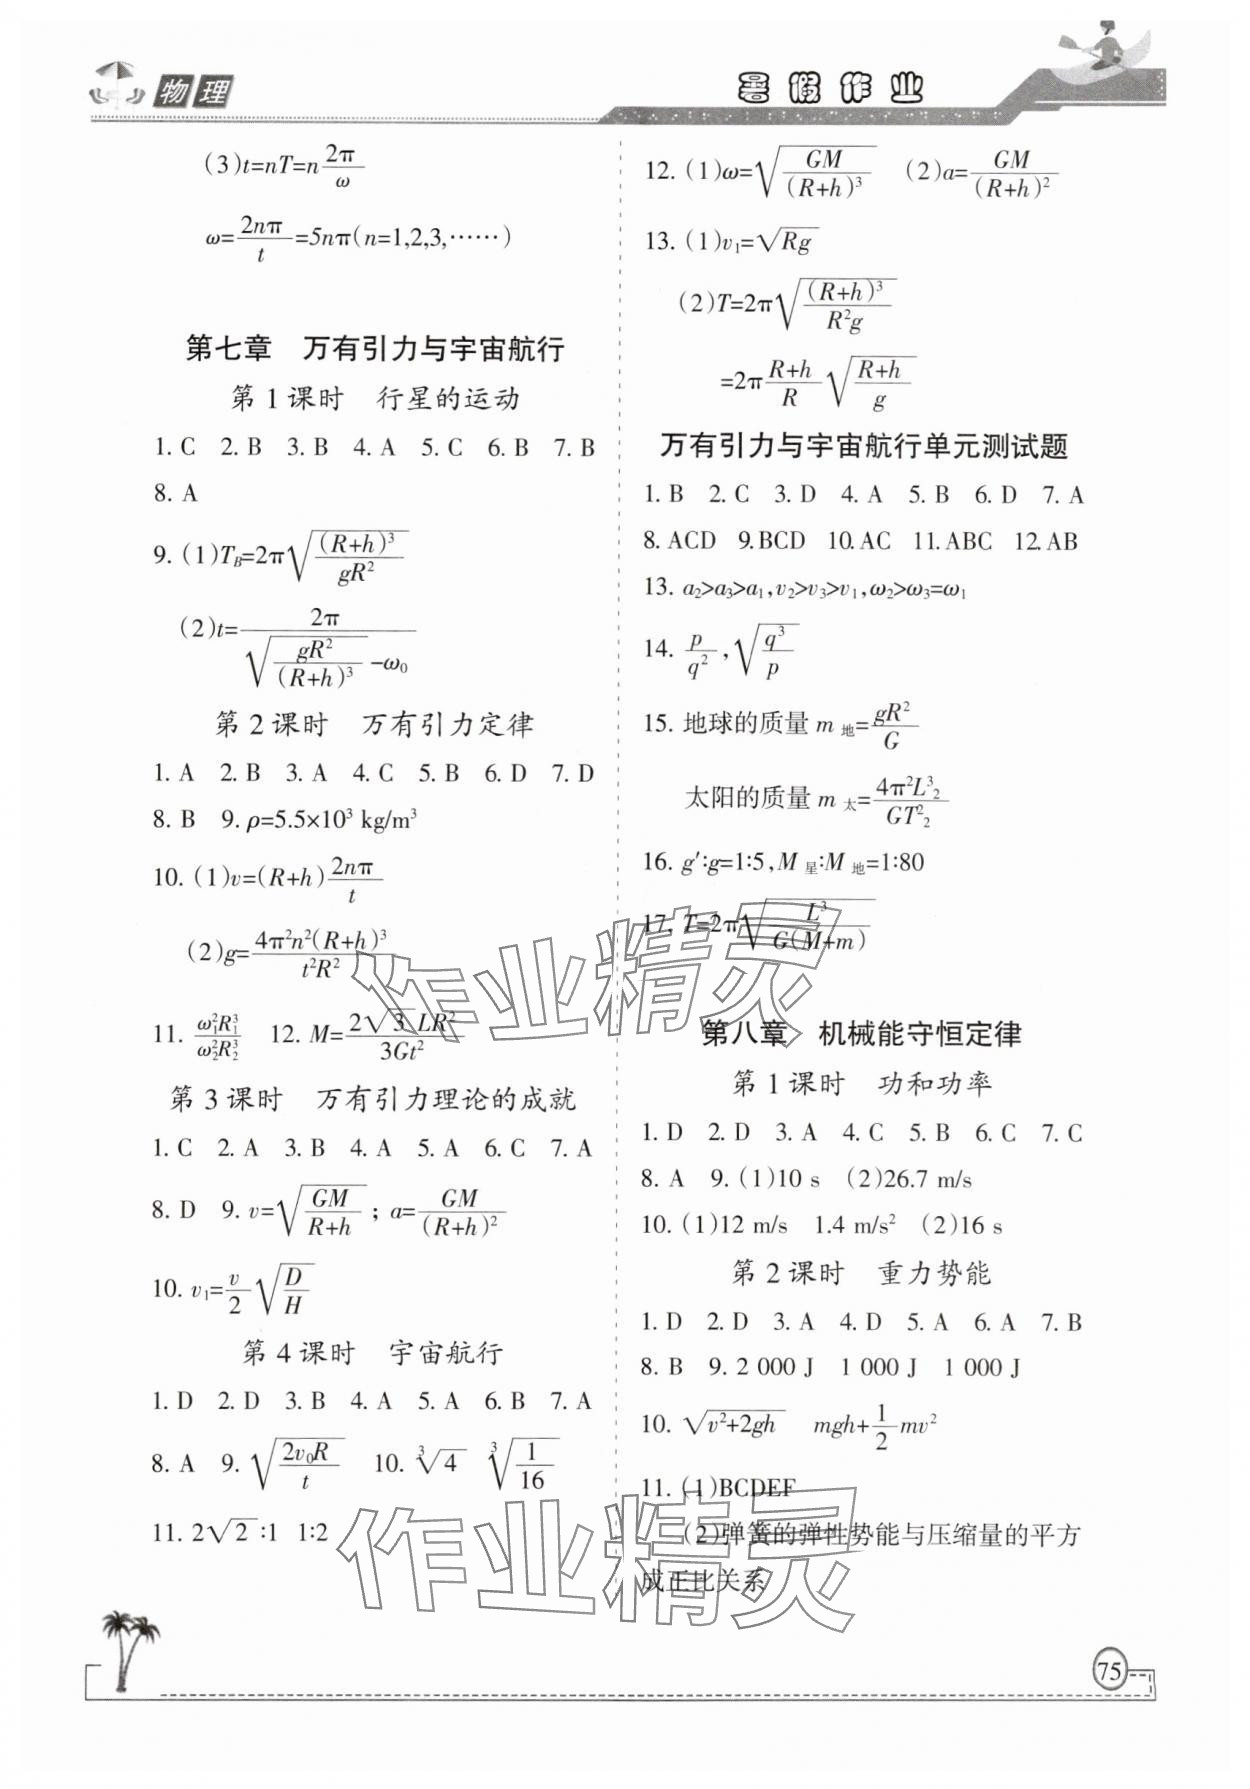 物理
暑假作业
(3)t=nT=n 2π/ω
ω=2nπ/t=5nπ(n=1,2,3,……)
第七章 万有引力与宇宙航行
第1课时 行星的运动
1. C 2. B 3. B 4. A 5. C 6. B 7. B
8. A
9. (1)T_B=2π√((R+h)³/gR²)
(2)t=2π/(√(gR²/(R+h)³)-ω₀)
第2课时 万有引力定律
1. A 2. B 3. A 4. C 5. B 6. D 7. D
8. B 9. ρ=5.5×10³ kg/m³
10. (1)v=(R+h)2nπ/t
(2)g=4π²n²(R+h)³/t²R²
11. ω₁²R₁³/ω₂²R₂³ 12. M=2√3 LR²/3Gt²
第3课时 万有引力理论的成就
1. C 2. A 3. B 4. A 5. A 6. C 7. A
8. D 9. v=√(GM/(R+h)) ; a=GM/(R+h)²
10. v₁=v/2 √(D/H)
第4课时 宇宙航行
1. D 2. D 3. B 4. A 5. A 6. B 7. A
8. A 9. √(2v₀R/t) 10. ³√4 ³√(1/16)
11. 2√2 ∶1 1∶2
12. (1)ω=√(GM/(R+h)³) (2)a=GM/(R+h)²
13. (1)v₁=√Rg
(2)T=2π√((R+h)³/R²g)
=2π (R+h)/R √((R+h)/g)
万有引力与宇宙航行单元测试题
1. B 2. C 3. D 4. A 5. B 6. D 7. A
8. ACD 9. BCD 10. AC 11. ABC 12. AB
13. a₂>a₃>a₁,v₂>v₃>v₁,ω₂>ω₃=ω₁
14. p/q² ,√(q³/p)
15. 地球的质量 m地=gR²/G
太阳的质量 m太=4π²L³₂/GT²₂
16. g′∶g=1∶5,M星∶M地=1∶80
17. T=2π√(L³/G(M+m))
第八章 机械能守恒定律
第1课时 功和功率
1. D 2. D 3. A 4. C 5. B 6. C 7. C
8. A 9. (1)10 s (2)26.7 m/s
10. (1)12 m/s 1.4 m/s² (2)16 s
第2课时 重力势能
1. D 2. D 3. A 4. D 5. A 6. A 7. B
8. B 9. 2 000 J 1 000 J 1 000 J
10. √(v²+2gh) mgh+1/2 mv²
11. (1)BCDEF
(2)弹簧的弹性势能与压缩量的平方
成正比关系
作业精灵
作业精灵
75